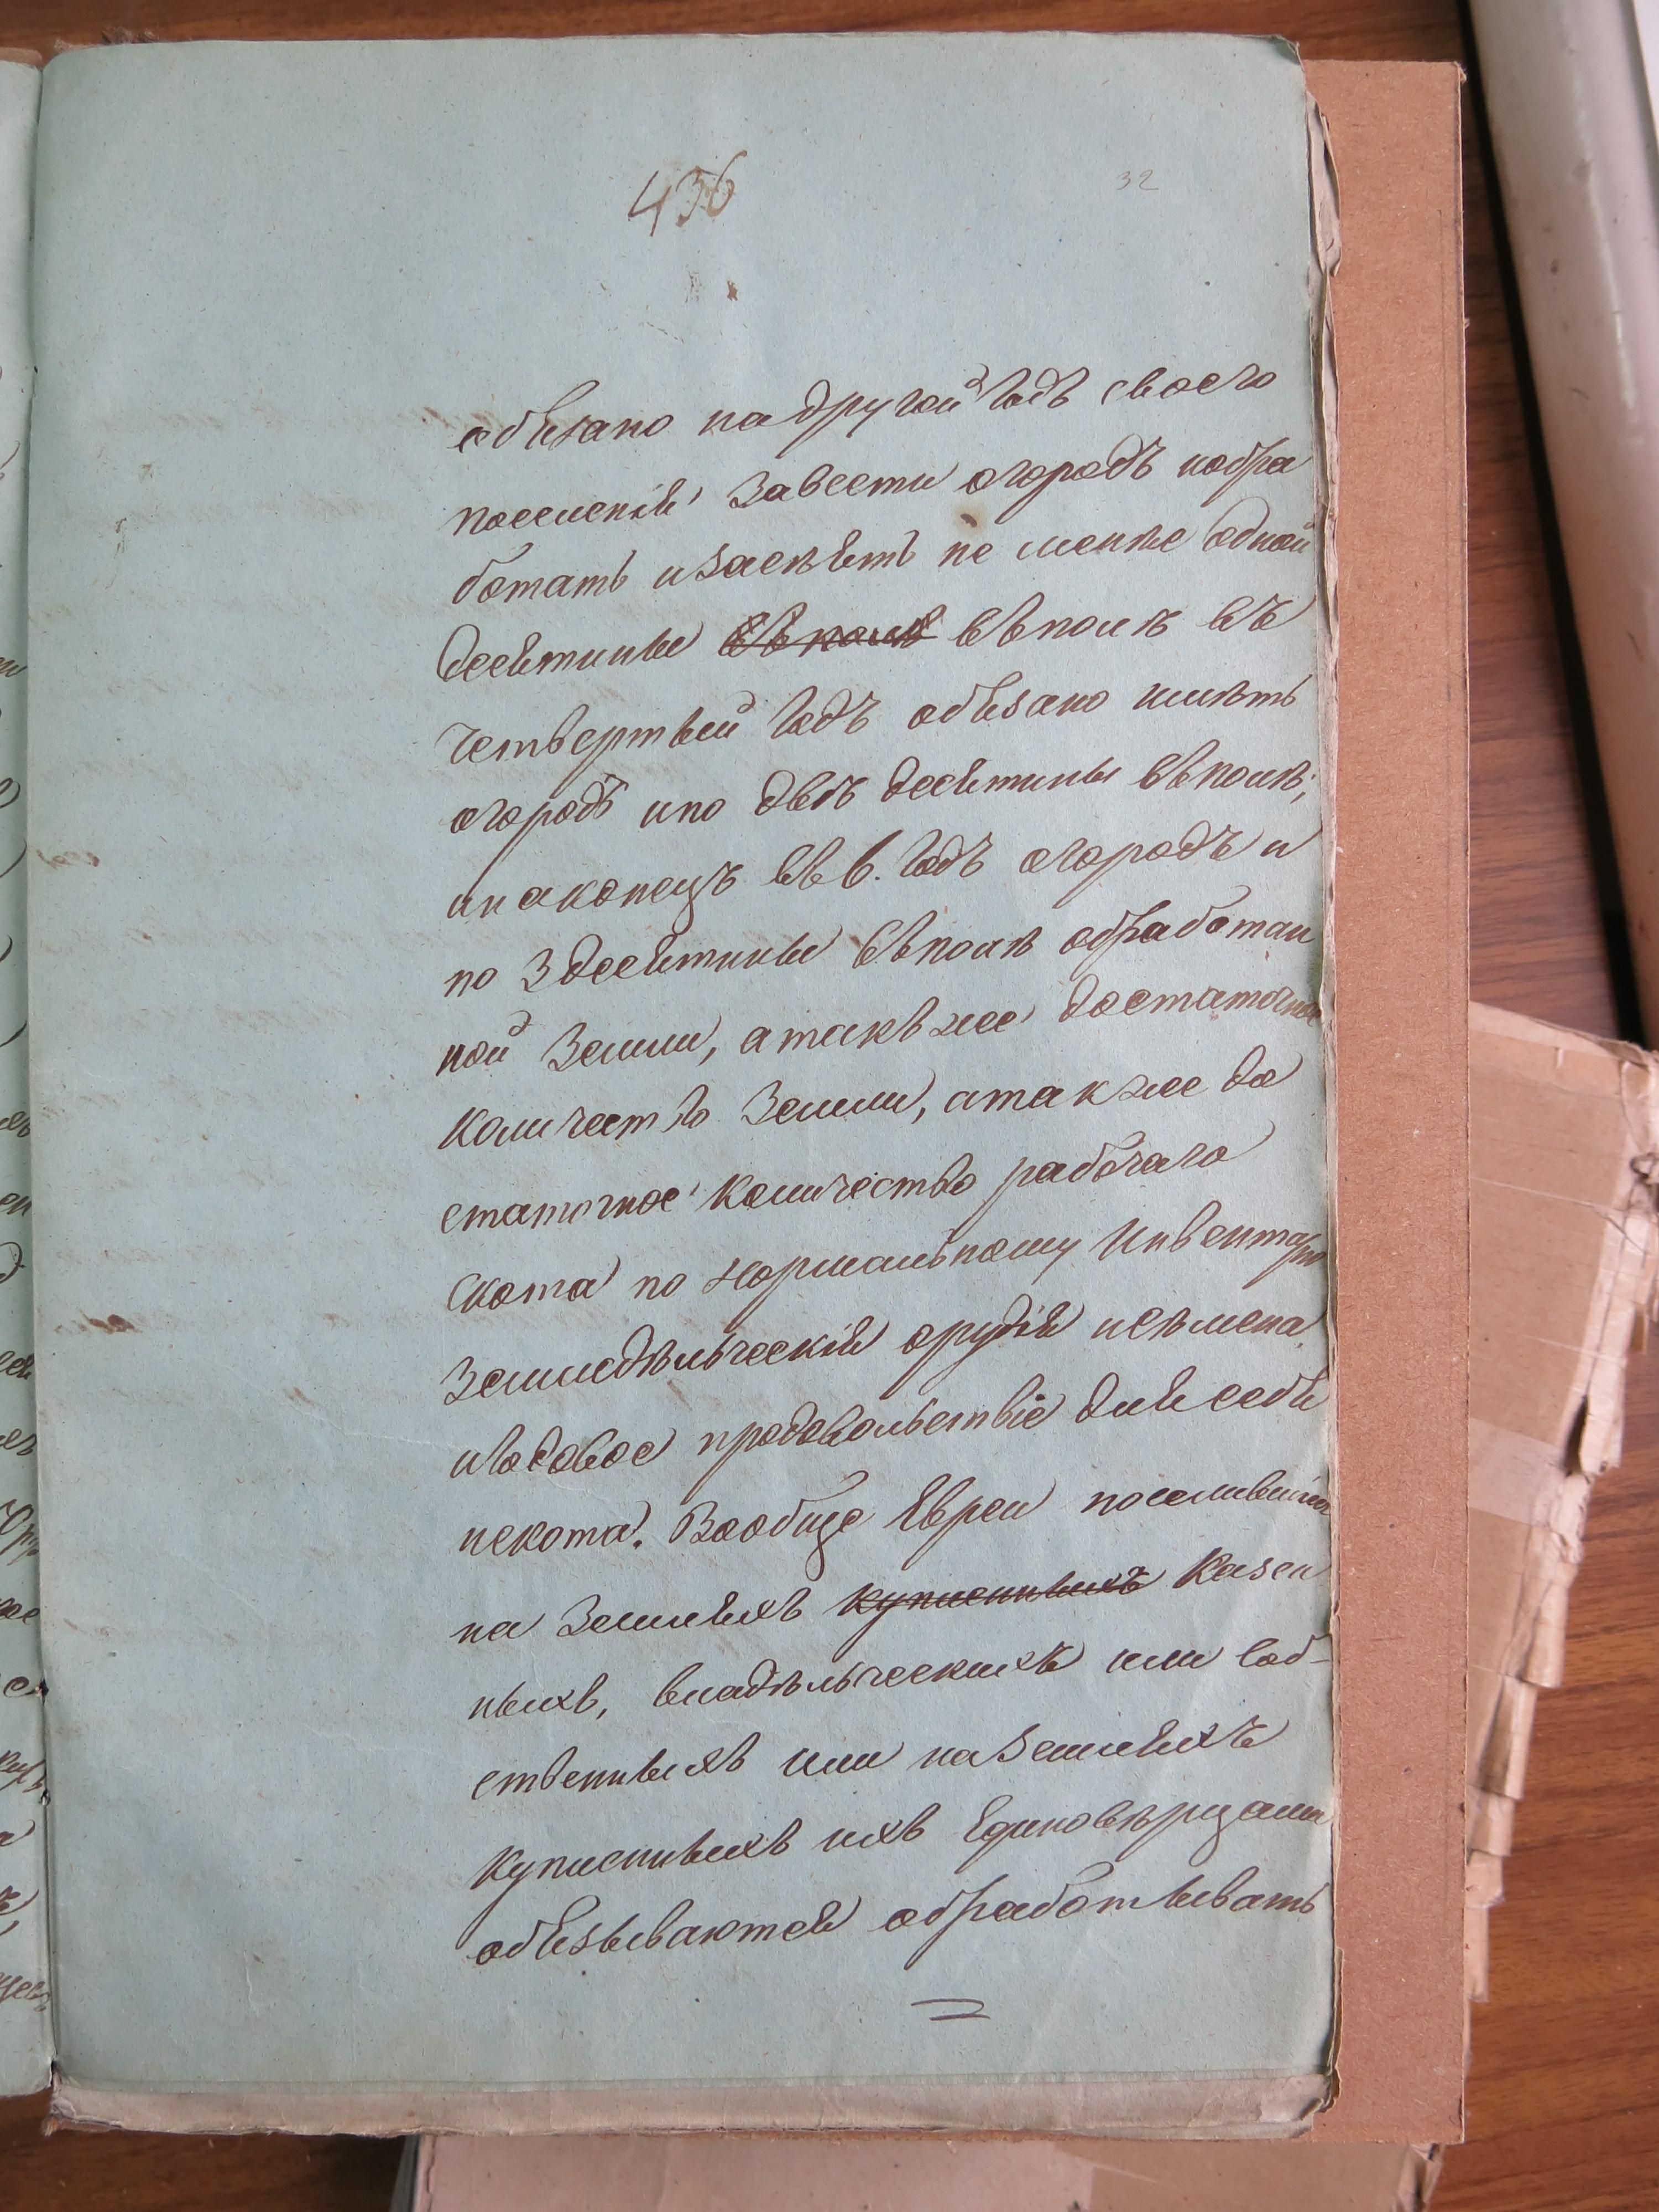 436
32
обязано на другой годъ своего
поселенія завести огородъ и обра
ботать и засѣять не менѣе одной
десятины въ полѣ въ полѣ въ
четвертый годъ обязано имѣть
огородъ и по двѣ десятины въ полѣ;
и наконецъ въ 6. годъ огородъ и
по 3 десятины въ полѣ обработан
ной земли, а такъ же достаточное
количество земли, а так же до
статочное количество рабочаго
скота по нормальному Инвентарю
земледѣльческія орудія и сѣмена
и годовое продовольствіе для себя
и скота. Вообще Евреи поселившіеся
на земляхъ купленныхъ казен
ныхъ, владѣльческихъ или соб-
ственныхъ или на земляхъ
купленныхъ ихъ Единовѣрцами
обязываются обработывать